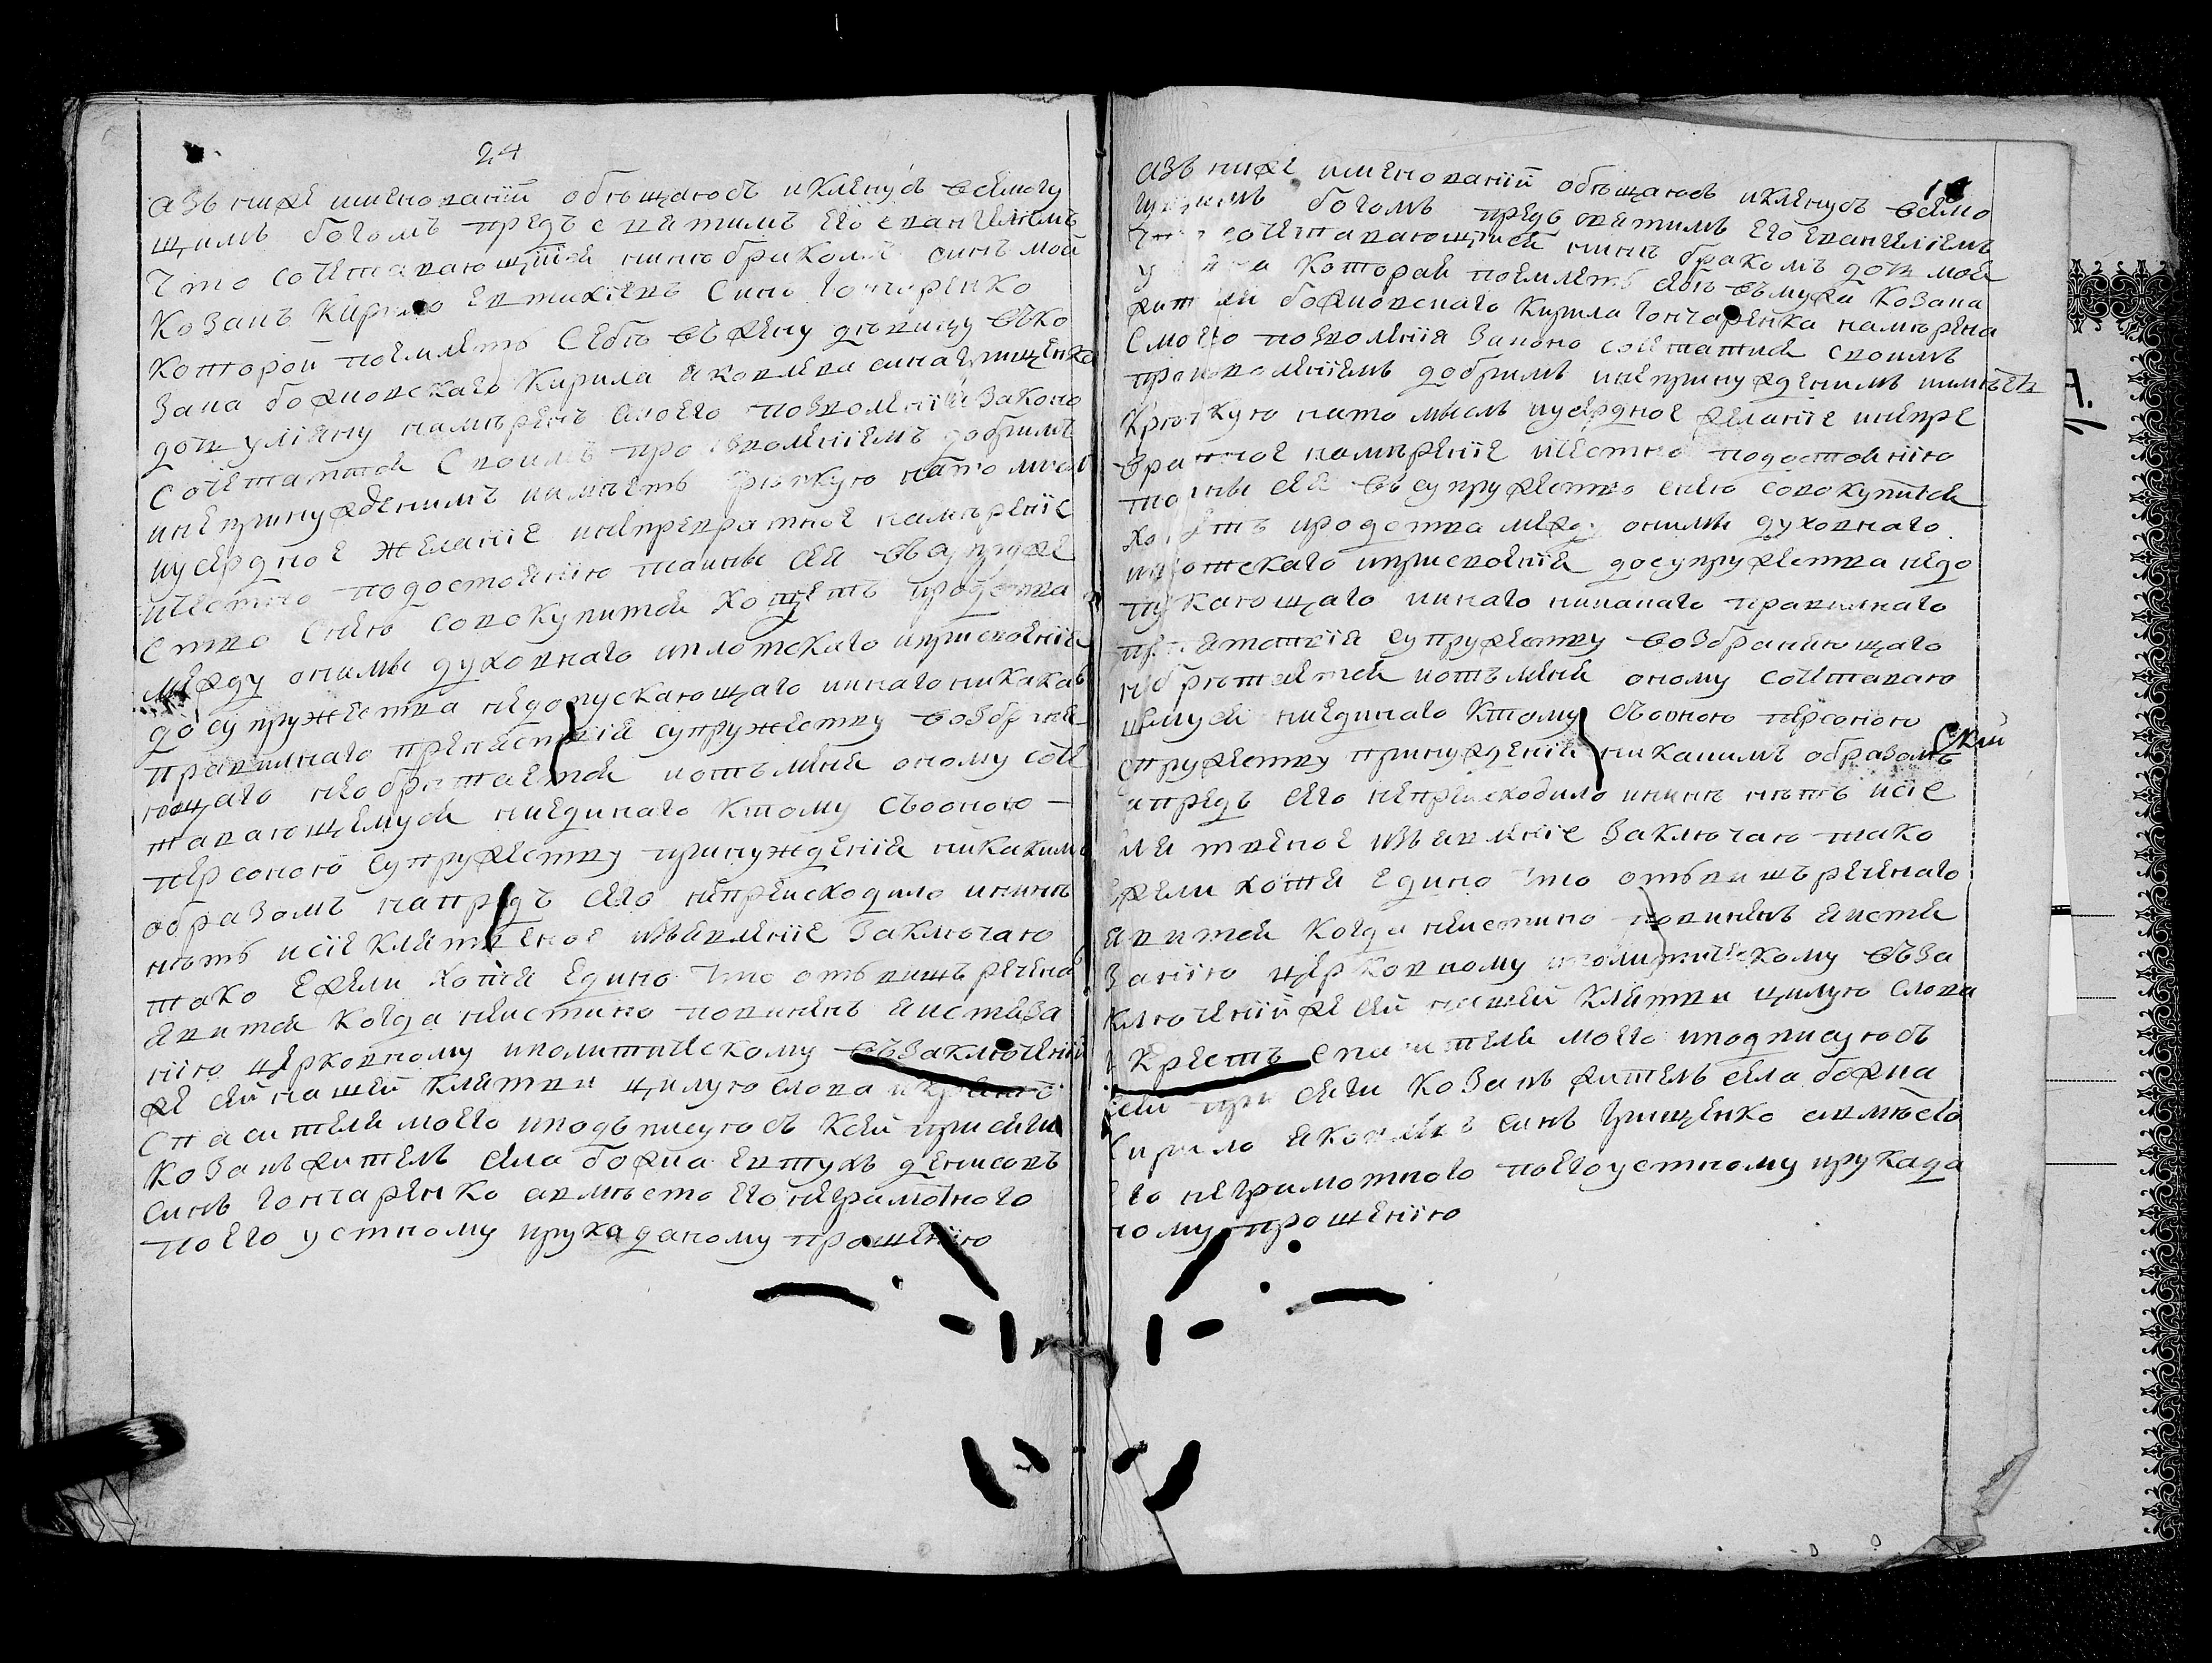 24
азъ ниже именованій обѣщаюсь и кленусь всемогу
щимъ богомъ предъ святимъ его евангелиемъ
что сочетавающійся нинѣ бракомъ синъ мой
козакъ Кирило Евтихіевъ синъ гончаренко
которой поемлетъ себѣ въ жену дѣвицу ко
зака божковскаго Кирила яковлева сина грищенка
дочь уліяну намѣренъ смоего позволенія законо
сочетатися своимъ произволениемъ добримъ
и непринужденимъ и имѣетъ крѣпкую на то мисль
и усердное желаніе и непревратное намѣреніе
и честно по достоянію тайны сея въ супруже
ство с нею совокупитися хощетъ и родства
между оними духовнаго и плотскаго и присвоенія
до супружества недопускающаго и инаго никакаго
правилнаго препятствія супружеству возбраня
ющаго не обрѣтается и отъ мене оному соче
тавающемуся ниединаго ктому съ оною
персоною супружеству принужденія никакимъ
образомъ напредъ сего непроисходило и нинѣ
нѣтъ и сіе клятвеное изъявленіе заключаю
тако ежели хотя едино что отъ вишъ реченаго
явится когда неистино повиненъ я истяза
нію церковному и политическому въ заключеній
же сей нашей клятви цилую слова и крестъ
спасителя моего и подъписуюсь ксей присяги
козакъ житель села божка Евтухъ денисовъ
синъ гончаренко а вмѣсто его неграмотного
по его устному и рукаданому прошенію
азъ ниже именованій обѣщаюсь и кленусь всемо
богомъ предъ святимъ его евангелиемъ
сочетавающаяся нинѣ бракомъ дочь моя
которая поемлетъ себѣ въ мужа козака
божковскаго Кирила гончаренка намѣрена
смоего позволенія законо сочетатися своимъ
произволениемъ добримъ и непринужденимъ и имѣетъ
крѣпкую на то мисль и усердное желаніе и непре
вратное намѣреніе и честно по достоянію
тайны сея въ супружество с нею совокупитися
хощетъ и родства между оними духовнаго
и плотскаго и присвоенія до супружества недо
пускающаго и инаго никакаго правилнаго
препятствія супружеству возбраняющаго
необрѣтается и отъ мене оному сочетаваю
щемуся ниединаго ктому съ оною персоною
супружеству принужденія никакимъ образомъ
напредъ сего непроисходило и нинѣ нѣтъ и сіе
клятвеное изъявленіе заключаю тако
ежели хотя едино что отъ вишъ реченаго
явится когда неистино повиненъ я истя
занію церковному и политическому въ за
ключеній же сей нашей клятви цилую слова
и крестъ спасителя моего и подписуюсь
ксей присяги козакъ житель села божка
Кирило яковлевъ синъ грищенко а вмѣсто
его неграмотного по его устному и рукада
ному прошенію